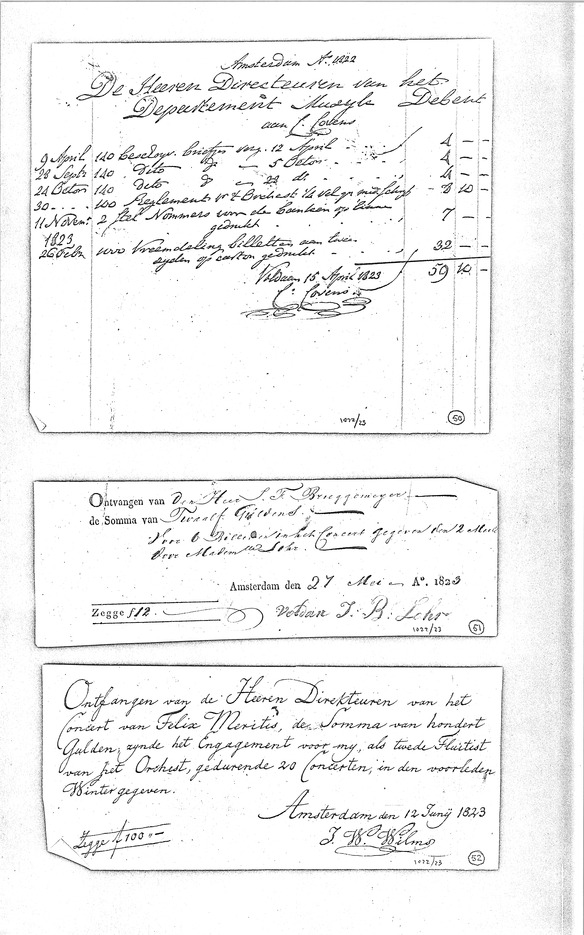 Amsterdam Aº. 1822
De Heeren Directeuren van het
Departement Muzyk Debent
aan C. Covens
9 April 140 beschryv. briefjes verg. 12 April 4 - -
28 Septr 140 dito 5 4 - -
24 140 dito 4 - -
30 100 Reglement 8 10 -
11 Novemr 2 stel Nommers voor de banken op 7 - -
gedrukt
1823
26 Febr 1000 Vreemdeling billetten aan twee 32 - -
zyden op carton gedrukt
59 10 -
Voldaan 15 April 1823
C. Covens
1022/23
50
Ontvangen van den Heer J. F. Bruggemeyer
de Somma van Twaalf Guldens
Voor 6 Billetten in het Concert gegeven den 2
door Lohr.
Amsterdam den 27 Mei Aº. 1823
Zegge ƒ12. voldaan J. B. Lohr
1022/23
51
Ontfangen van de Heeren Direkteuren van het
Concert van Felix Meritis, de Somma van hondert
Gulden, zynde het Engagement voor my, als twede Fluitist
van het Orchest, gedurende 20 Concerten, in den voorleden
Winter gegeven.
Amsterdam den 12 Junij 1823
Zegge ƒ100 -
J. W. Wilms
1022/23
52